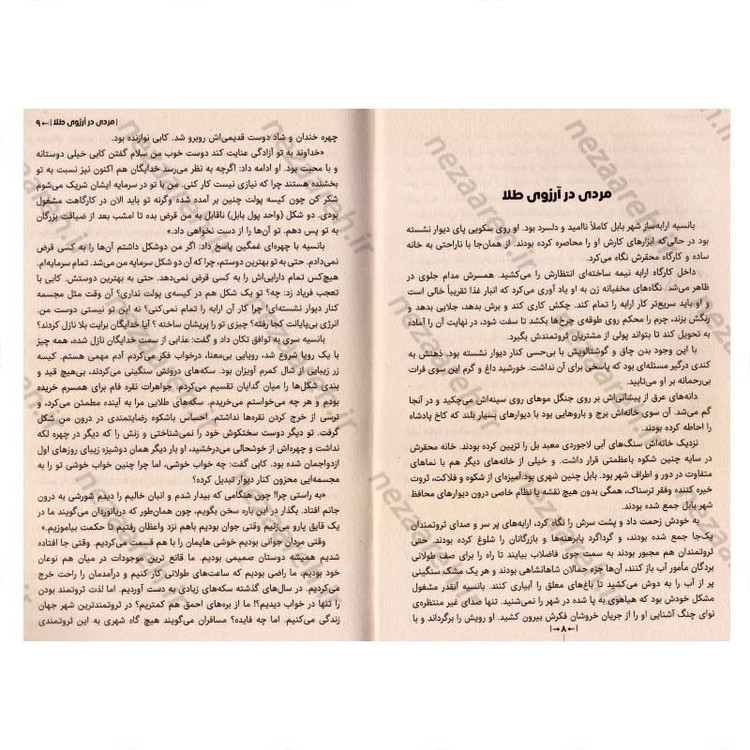 مردی در آرزوی طلا
بانسیه ارابه‌ساز شهر بابل کاملاً ناامید و دلسرد بود. او روی سکویی پای دیوار نشسته
بود در حالی‌که ابزارهای کارش او را محاصره کرده بودند. از همان‌جا با ناراحتی به خانه
ساده و کارگاه محقرش نگاه می‌کرد.
داخل کارگاه ارابه نیمه ساخته‌ای انتظارش را می‌کشید. همسرش مدام جلوی در
ظاهر می‌شد. نگاه‌های مخفیانه زن به او یاد آوری می‌کرد که انبار غذا تقریباً خالی است
و او باید سریع‌تر کار ارابه را تمام کند. چکش کاری کند و برش بدهد، جلایی بدهد و
رنگش بزند، چرم را محکم روی طوقه‌ی چرخ‌ها بکشد تا سفت شود، در نهایت آن را آماده
به تحویل کند تا بتواند پولی از مشتریان ثروتمندش بگیرد.
با این وجود بدن چاق و گوشتالویش با بی‌حسی کنار دیوار نشسته بود. ذهنش به
کندی درگیر مسئله‌ای بود که پاسخی برای آن نداشت. خورشید داغ و گرم این سوی فرات
بی‌رحمانه بر او می‌تابید.
دانه‌های عرق از پیشانی‌اش بر روی جنگل موهای روی سینه‌اش می‌چکید و در آنجا
گم می‌شد. آن سوی خانه‌اش برج و باروهایی بود با دیوارهای بسیار بلند که کاخ پادشاه
را احاطه کرده بودند.
نزدیک خانه‌اش سنگ‌های آبی لاجوردی معبد بل را تزیین کرده بودند. خانه محقرش
در سایه چنین شکوه باعظمتی قرار داشت. و خیلی از خانه‌های دیگر هم با نماهای
متفاوت در دور و اطراف شهر بود. بابل چنین شهری بود.آمیزه‌ای از شکوه و فلاکت، ثروت
خیره کننده وفقر ترسناک، همگی بدون هیچ نقشه یا نظام خاصی درون دیوارهای محافظ
شهر بابل جمع شده بودند.
به خودش زحمت داد و پشت سرش را نگاه کرد، ارابه‌های پر سر و صدای ثروتمندان
یک‌جا جمع شده بودند، و گرداگرد پابرهنه‌ها و بازرگانان را شلوغ کرده بودند. حتی
ثروتمندان هم مجبور بودند به سمت جوی فاضلاب بیایند تا راه را برای صف طولانی
بردگان مأمور آب باز کنند، آن‌ها جزء جمالان شاهانشاهی بودند و هر یک مشک سنگینی
پر از آب را به دوش می‌کشید تا باغ‌های معلق را آبیاری کنند. بانسیه آنقدر مشغول
مشکل خودش بود که هیاهوی به پا شده در شهر را نمی‌شنید. تنها صدای غیر منتظره‌ی
نوای چنگ آشنایی او را از جریان خروشان فکرش بیرون کشید. او رویش را برگرداند و با
۸
مردی در آرزوی طلا ۹
چهره خندان و شاد دوست قدیمی‌اش روبرو شد. کابی نوازنده بود.
«خداوند به تو آزادگی عنایت کند دوست خوب من سلام گفتن کابی خیلی دوستانه
و با محبت بود. او ادامه داد: اگرچه به نظر می‌رسد خدایگان هم اکنون نیز نسبت به تو
بخشنده هستند چرا که نیازی نیست کار کنی. من با تو در سرمایه ایشان شریک می‌شوم
شکر کن چون کیسه پولت چنین بر آمده شده وگرنه تو باید الان در کارگاهت مشغول
بودی. دو شکل (واحد پول بابل) ناقابل به من قرض بده تا امشب بعد از ضیافت بزرگان
به تو پس دهم. تو آن‌ها را از دست نخواهی داد.»
بانسیه با چهره‌ای غمگین پاسخ داد: اگر من دوشکل داشتم آن‌ها را به کسی قرض
نمی‌دادم. حتی به تو بهترین دوستم، چرا که آن دو شکل سرمایه من می‌شد. تمام سرمایه‌ام.
هیچ‌کس تمام دارایی‌اش را به کسی قرض نمی‌دهد. حتی به بهترین دوستش. کابی با
تعجب فریاد زد: چه؟ تو یک شکل هم در کیسه‌ی پولت نداری؟ آن وقت مثل مجسمه
کنار دیوار نشسته‌ای! چرا کار آن ارابه را تمام نمی‌کنی؟ نه این تو نیستی دوستی من.
انرژی بی‌پایانت کجا رفته؟ چیزی تو را پریشان ساخته؟ آیا خدایگان برایت بلا نازل کردند؟
بانسیه سری به توافق تکان داد و گفت: عذابی از سمت خدایگان نازل شده، همه چیز
با یک رویا شروع شد، رویایی بی‌معنا، درخواب فکر می‌کردم آدم مهمی هستم. کیسه
زر زیبایی از شال کمرم آویزان بود. سکه‌های درونش سنگینی می‌کردند، بی‌هیچ قید و
بندی شکل‌ها را میان گدایان تقسیم می‌کردم. جواهرات نقره فام برای همسرم خریده
بودم و هر چه می‌خواستم می‌خریدم. سکه‌های طلایی مرا به آینده مطمئن می‌کرد، و
ترسی از خرج کردن نقره‌ها نداشتم. احساس باشکوه رضایتمندی در درون من شکل
گرفت. تو دیگر دوست سختکوش خود را نمی‌شناختی و زنش را که دیگر در چهره لکه
نداشت و چهره‌اش از خوشحالی می‌درخشید، او بار دیگر همان دوشیزه زیبای روزهای اول
ازدواجمان شده بود. کابی گفت: چه خواب خوشی، اما چرا چنین خواب خوشی تو را به
مجسمه‌ایی محزون کنار دیوار تبدیل کرده؟
«به راستی چرا! چون هنگامی که بیدار شدم و انبان خالیم را دیدم شورشی به درون
جانم افتاد. بگذار در این باره سخن بگویم، چون همان‌طور که دریانوردان می‌گویند ما در
یک قایق پارو می‌زنیم. وقتی جوان بودیم باهم نزد واعظان رفتیم تا حکمت بیاموزیم.»
وقتی مردان جوانی بودیم خوشی هایمان را با هم قسمت می‌کردیم. وقتی جا افتاده
شدیم همیشه دوستان صمیمی بودیم. ما قانع ترین موجودات در میان هم نوعان
خود بودیم. ما راضی بودیم که ساعت‌های طولانی کار کنیم و درآمدمان را راحت خرج
می‌کردیم. در سال‌های گذشته سکه‌های زیادی به دست آوردیم. اما لذت ثروتمند بودن
را تنها در خواب دیدیم؟! ما از بره‌های احمق هم کمتریم؟ در ثروتمندترین شهر جهان
زندگی می‌کنیم. اما چه فایده؟ مسافران می‌گویند هیچ گاه شهری به این ثروتمندی
nezaareh.ir